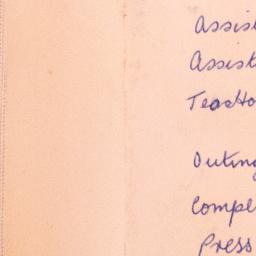 Assist
Assist
Outing
Compe
Press